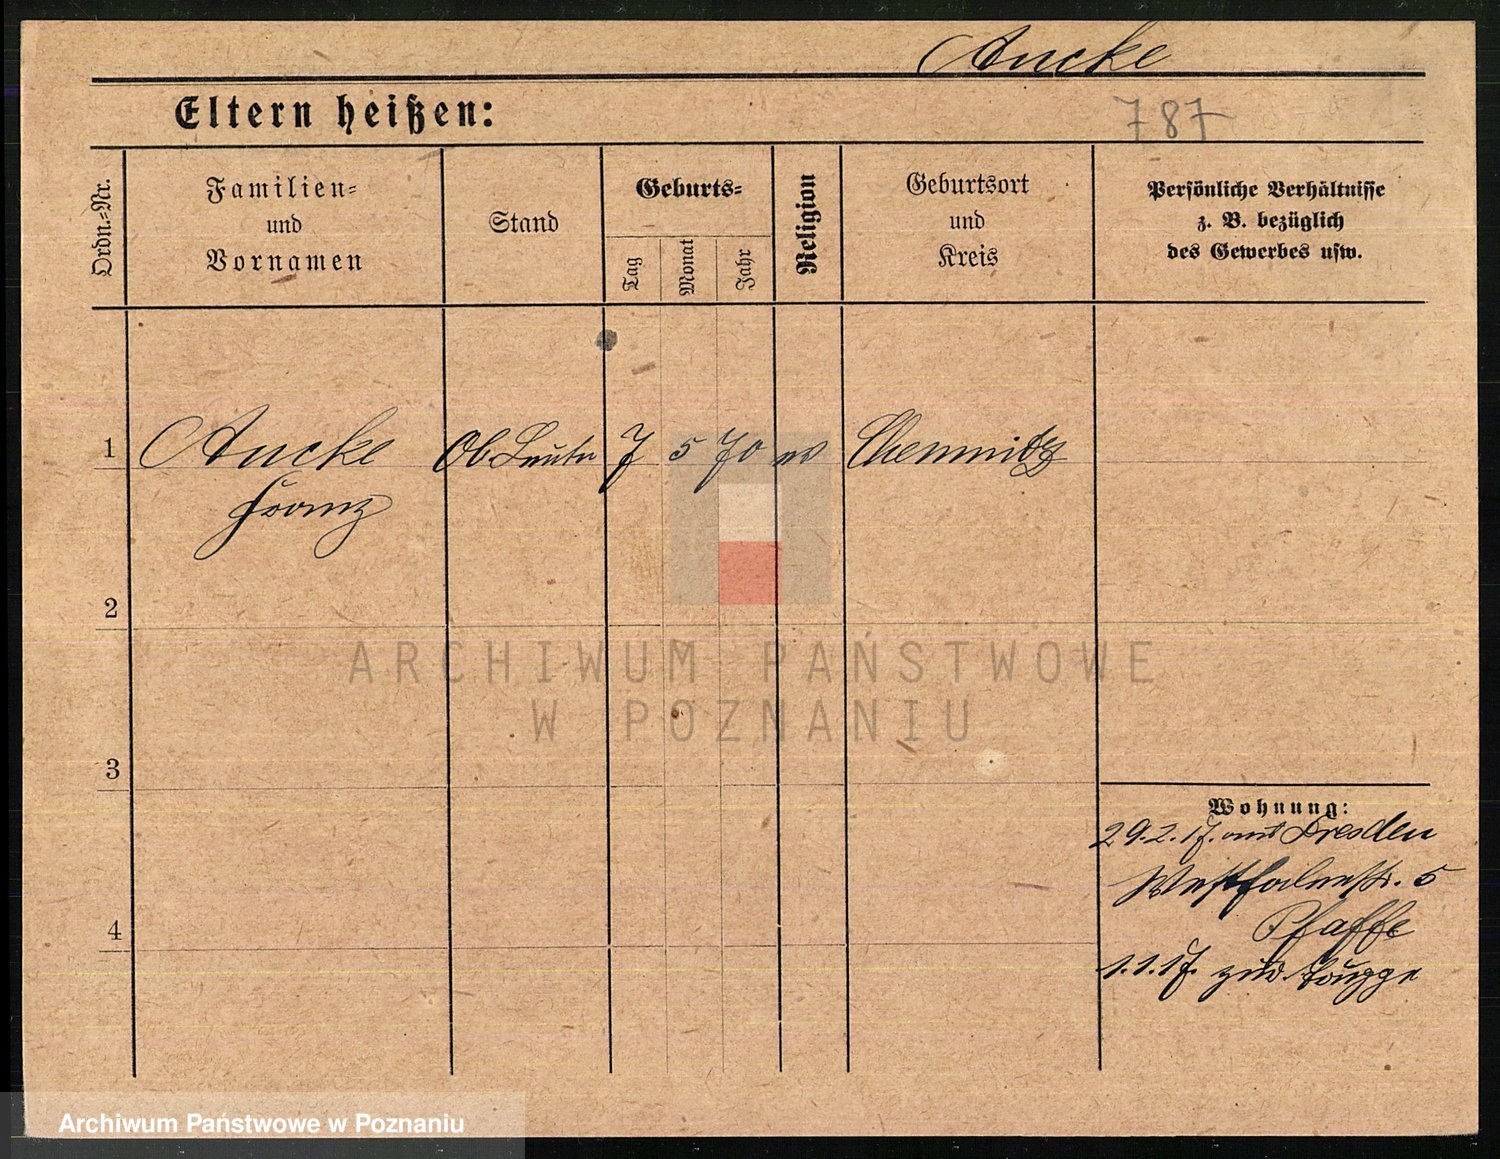 Aucke
Eltern heißen:
787
Ordn.=Nr.
Familien=
und
Vornamen
Stand
Geburts=
Tag
Monat
Jahr
Religion
Geburtsort
und
Kreis
Persönliche Verhältnisse
z. B. bezüglich
des Gewerbes usw.
1
Aucke
Ob Leutn
7 5 70
ev
Chemnitz
Franz
2
ARCHIWUM PAŃSTWOWE
W POZNANIU
3
Wohnung:
29.2.17. aus Dresden
Westfalenstr. 5
Pfaffe
4
1.1.17. zur Truppe
Archiwum Państwowe w Poznaniu